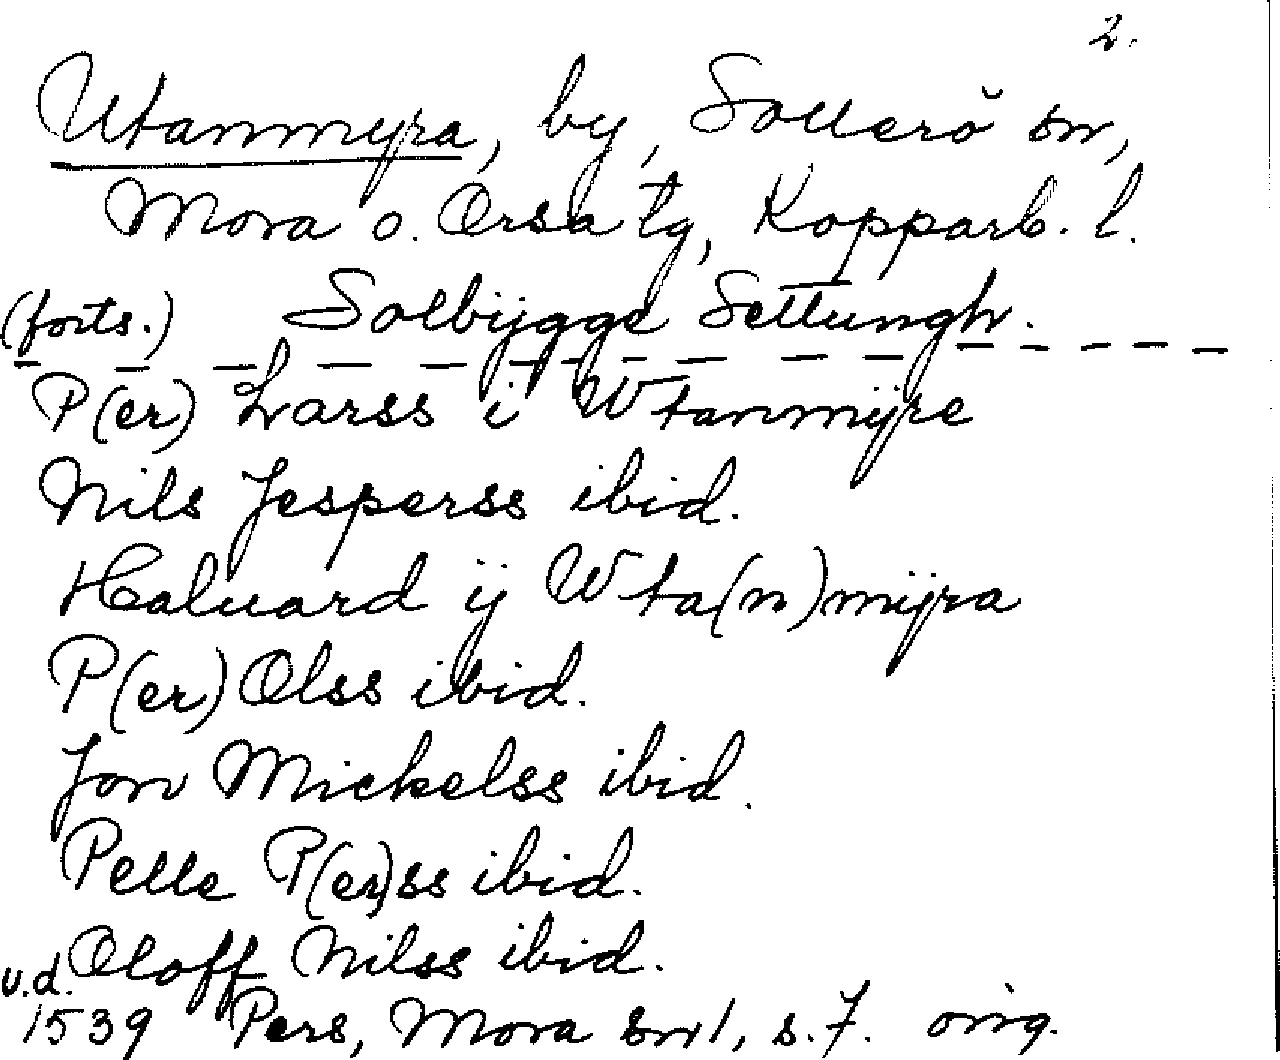 2.
Utanmyra, by, Sollerö sn,
Mora o. Orsa tg, Kopparb. l.
(forts.) Solbÿgge Settungh.
P(er) Larss i Wtanmÿre
Nils Jesperss ibid.
Haluard ÿ Wta(n)mÿra
P(er) Olss ibid.
Jon Mickelss ibid.
Pelle P(er)ss ibid.
Oloff Nilss ibid.
u.d.
1539 Pers, Mora snl, s. 7. orig.